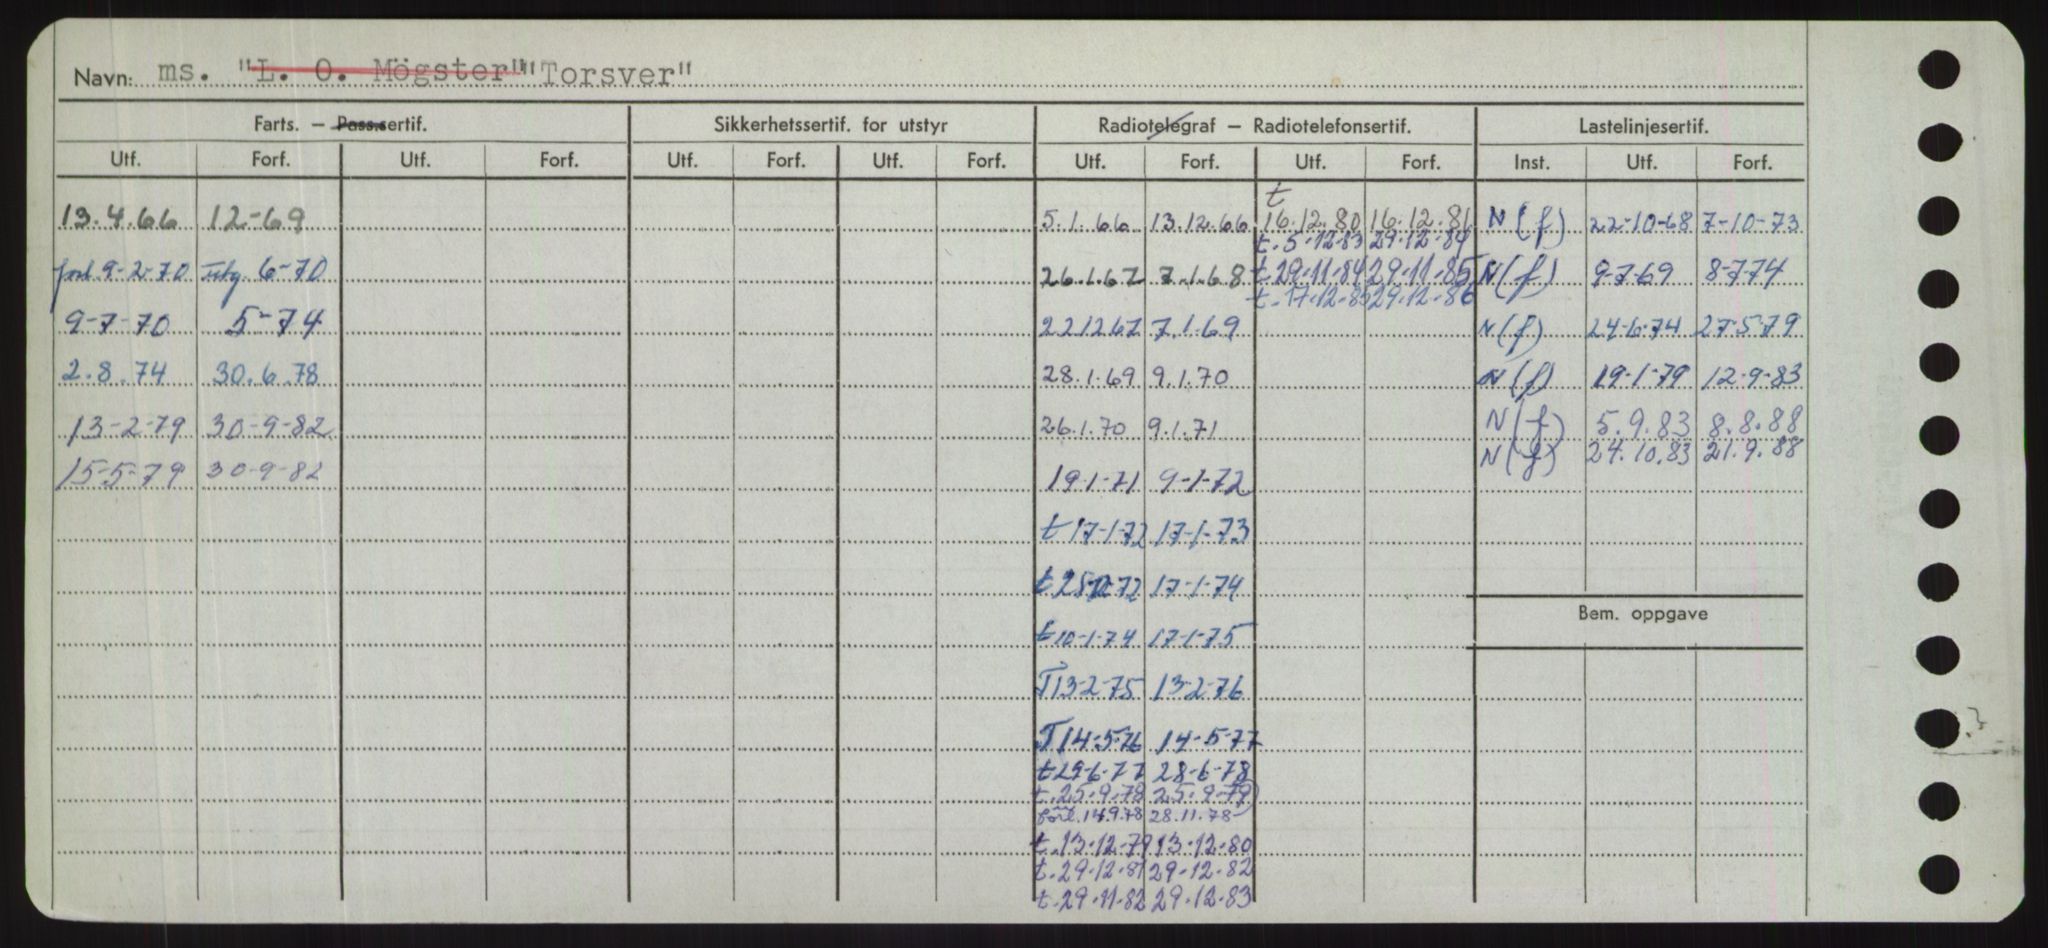 Navn: ms. "L. O. Mögster" "Torsver"
Farts. — Pass.sertif. Sikkerhetssertif. for utstyr Radiotelegraf — Radiotelefonsertif. Lastelinjesertif.
Utf. Forf. Utf. Forf. Utf. Forf. Utf. Forf. Utf. Forf. Utf. Forf. Inst. Utf. Forf.
t
13.4.66 12-69 5.1.66 13.12.66 16.12.80 16.12.81 N(f) 22-10-68 7-10-73
t.5.12.83 29.12.84
forl 9-2-70 utg. 6-70 26.1.67 7.1.68 t.29.11.84 29.11.85 N(f) 9-7-69 8-7-74
t.17.12.85 29.12.86
9-7-70 5-74 22.12.67 7.1.69 N(f) 24-6-74 27-5-79
2.8.74 30.6.78 28.1.69 9.1.70 N(f) 19-1-79 12-9-83
13-2-79 30-9-82 26.1.70 9.1.71 N(f) 5.9.83 8.8.88
15-5-79 30-9-82 N(f) 24.10.83 21.9.88
19-1-71 9-1-72
t 17-1-72 17-1-73
t 17-1-74
t 10-1-74 17-1-75
Bem. oppgave
T 13-2-75 13-2-76
T 14-5-76 14-5-77
t 29-6-77 28-6-78
t.25.9.78 25.9.79)
forl. 14.9.78 28.11.78
t.13.12.79 13.12.80
t.29.12.81 29.12.82
t.29.11.82 29.12.83